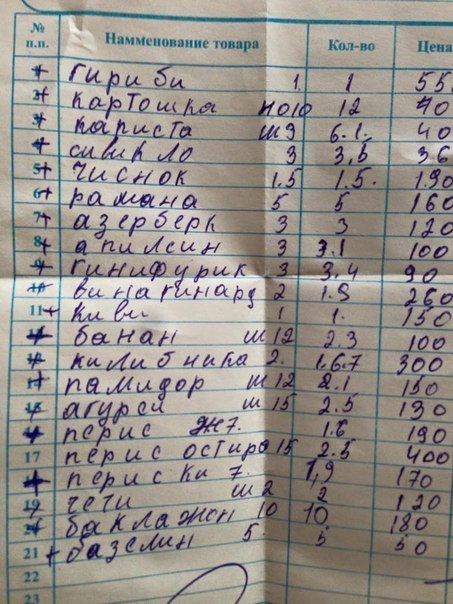 № п.п. Намменование товара Кол-во Цена
1 гириби 1. 1 55
2 картошка 12 40
3 кариста ш9 6.1. 40
4 сивикло 3 3,5 36
5 чиснок 1.5 1.5. 190
6 рамана 5 5 160
7 азерберк 3 3 120
8 апилсин 3 3.1 100
9 гинифурик 3 3,4 90
10 винагинард 2 1.9 260
11 киви 1 1. 150
банан ш 12 2.3 100
килибника 2. 1.6.7 300
памидор ш 12 2.1 150
агурси ш 15 2.5 130
перис ж7. 1.6 190
17 перис остиро 15 2.5 400
перис ки 7. 1,9 170
19 чечи ш 2 2 120
баклажон 10 10 180
21 базелин 5. 5 50
22
23